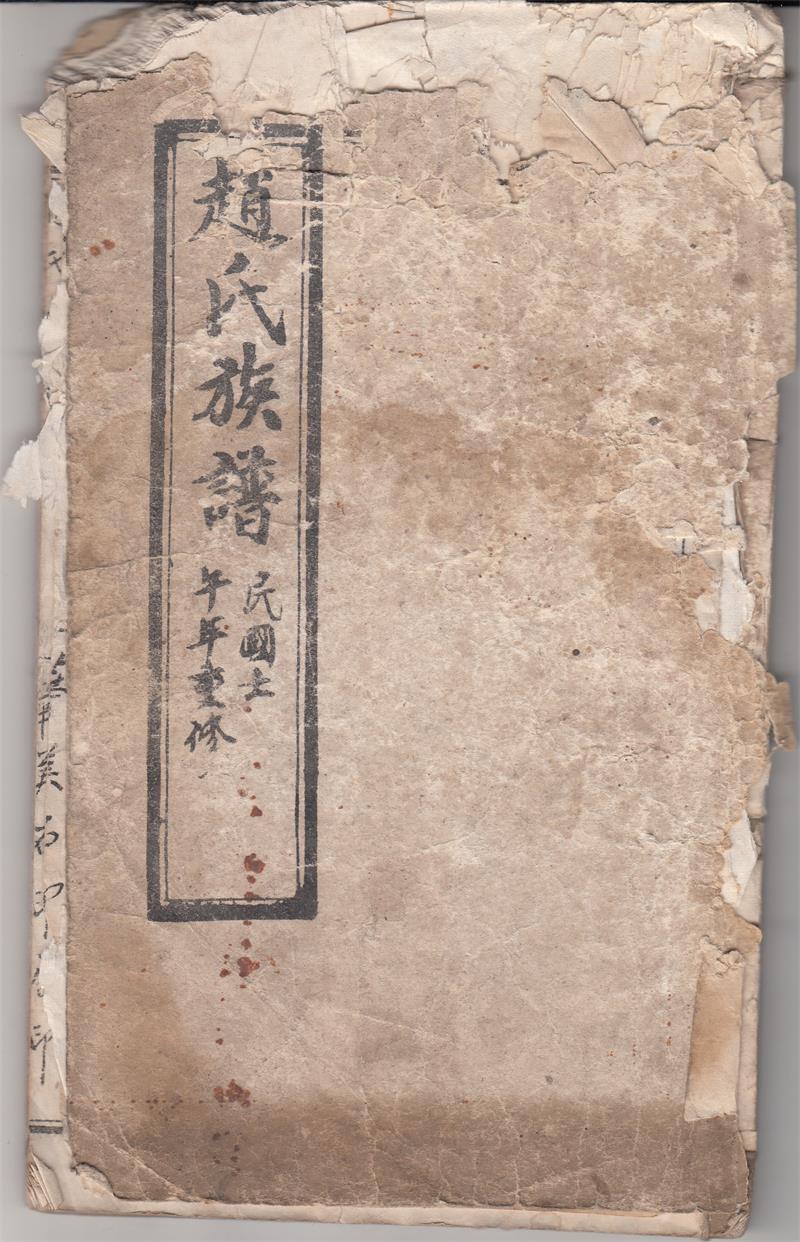 趙氏族譜
民國壬
午年重修
華美石印 印